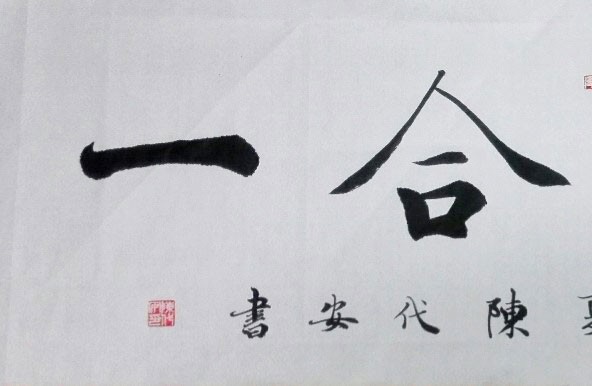 合一
陳代安書